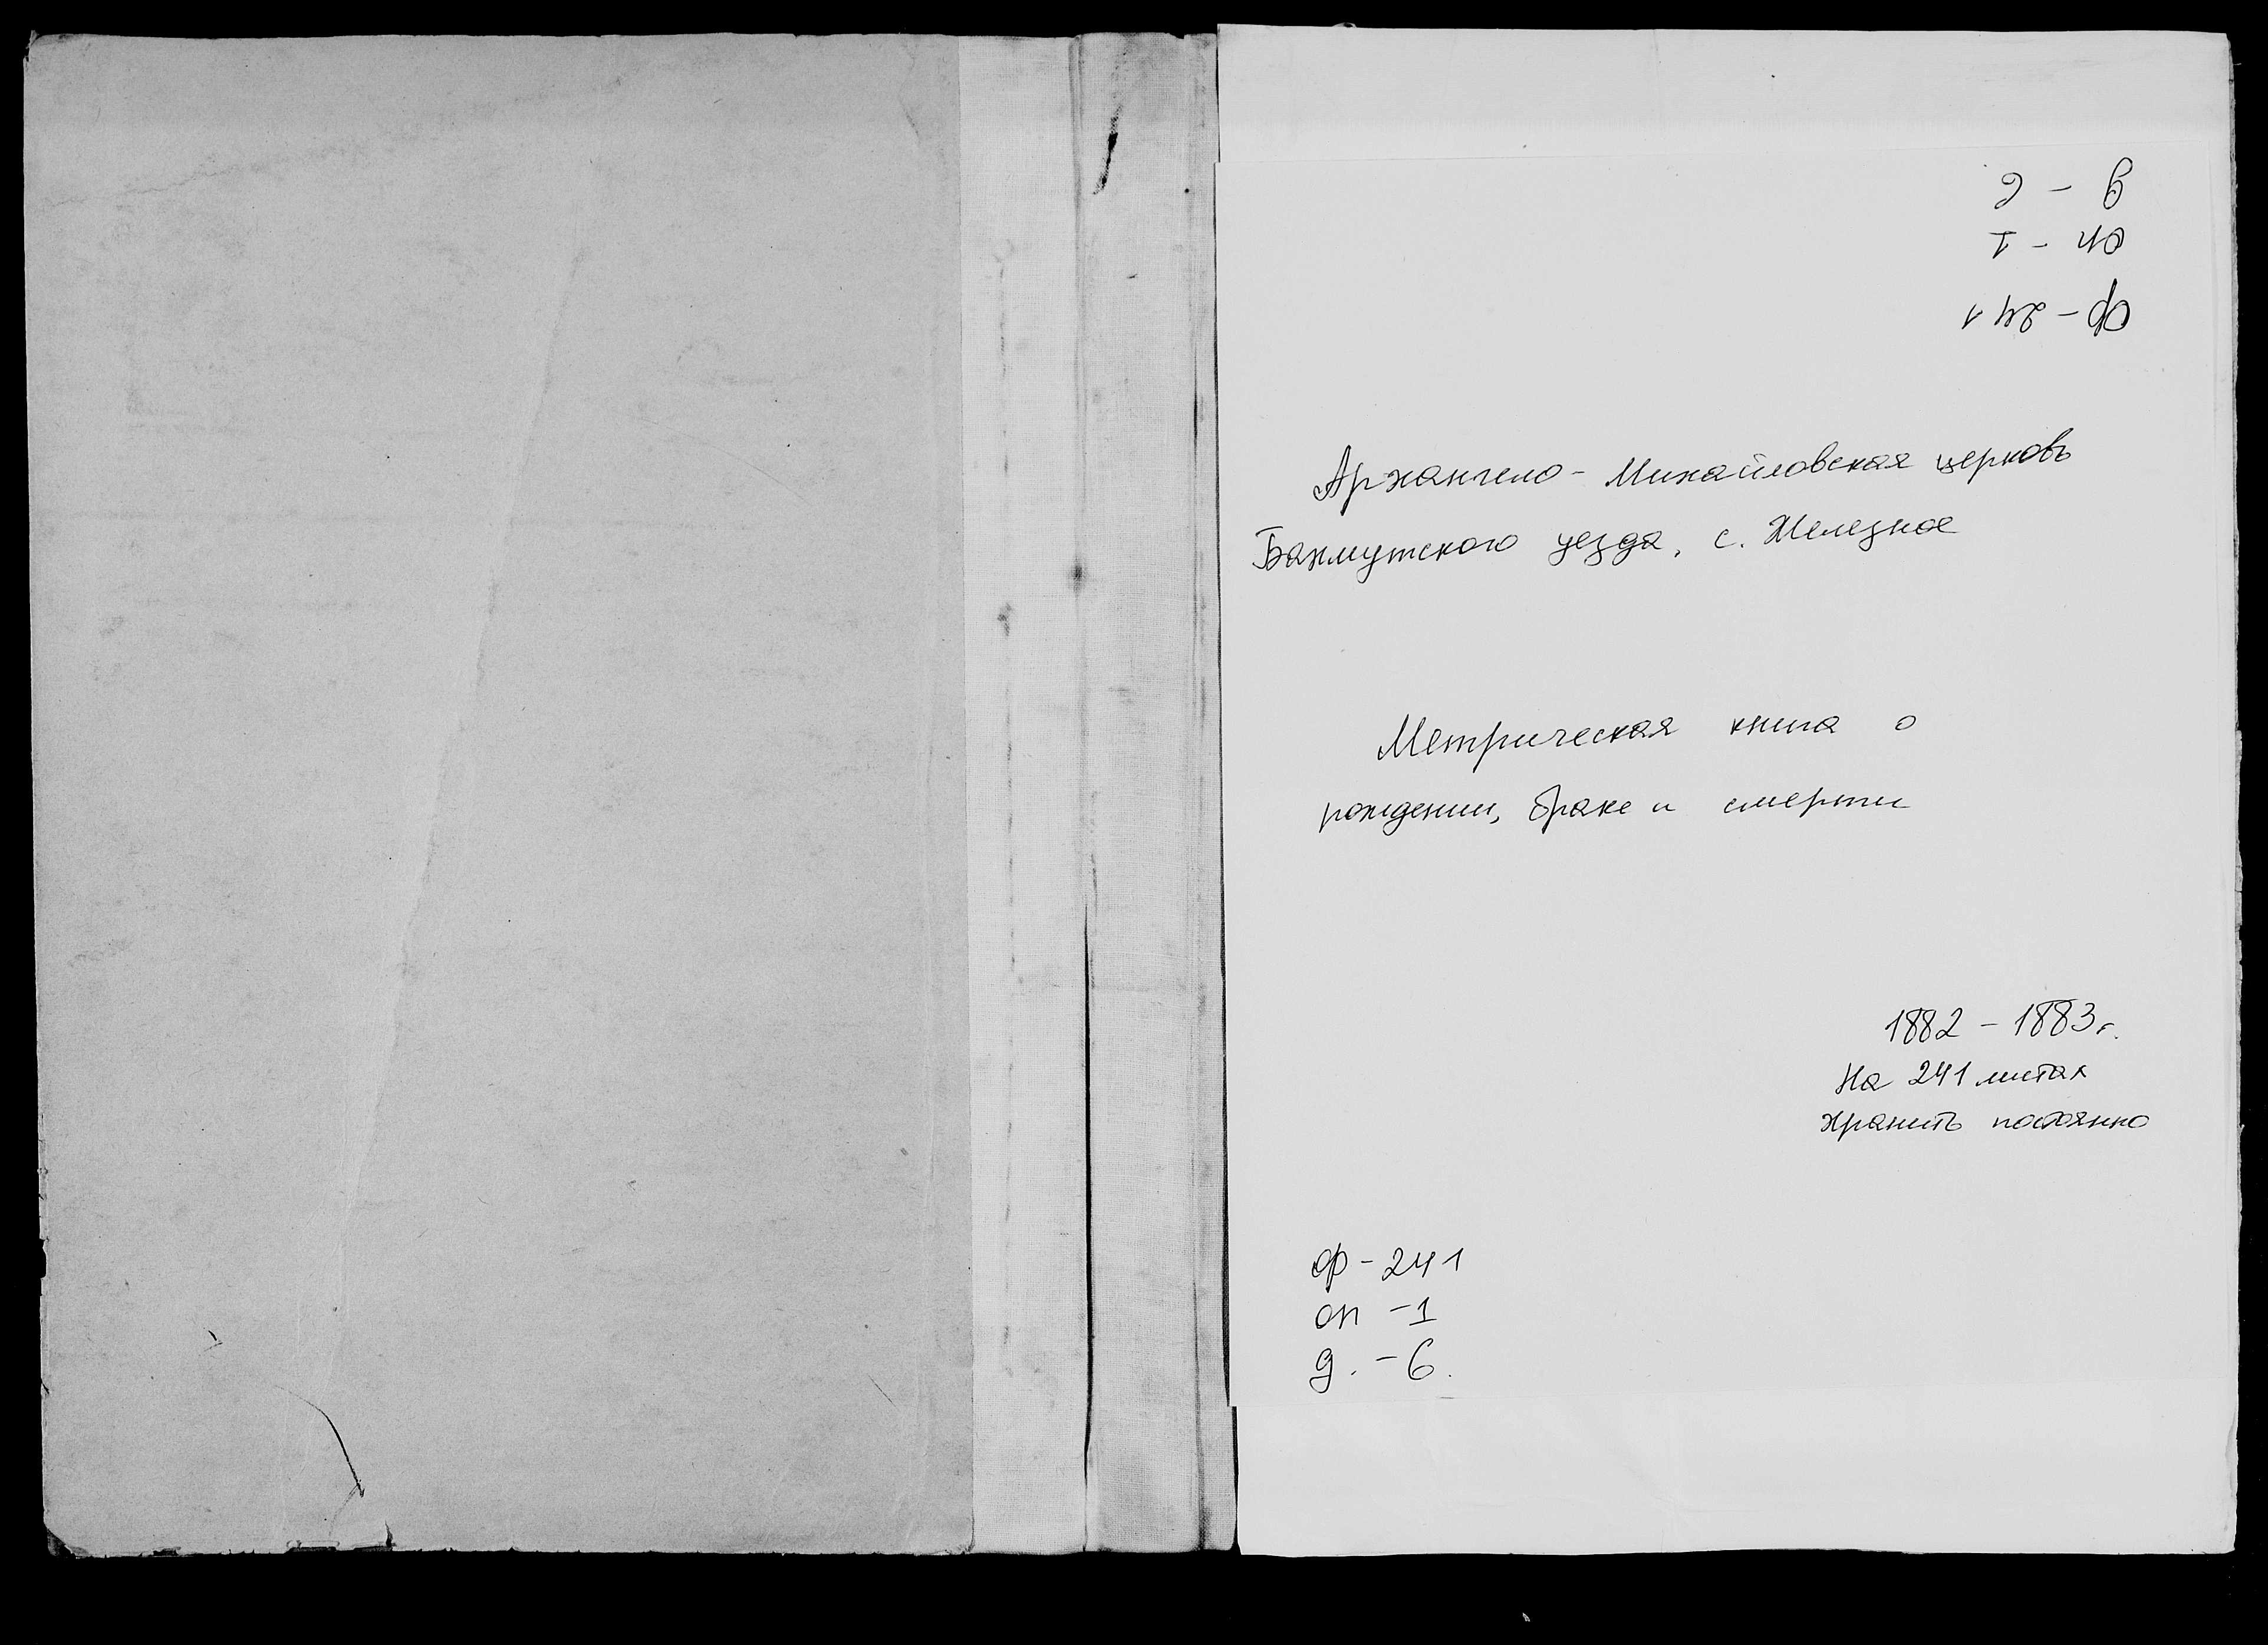 д - 6
оп - 1
Ф - 241
Архангело - Михайловская церковь
Бахмутского уезда, с. Железное
Метрическая книга о
рождении, браке и смерти
1882 - 1883 г.
На 241 листах
хранить постоянно
Ф - 241
оп - 1
д. - 6.